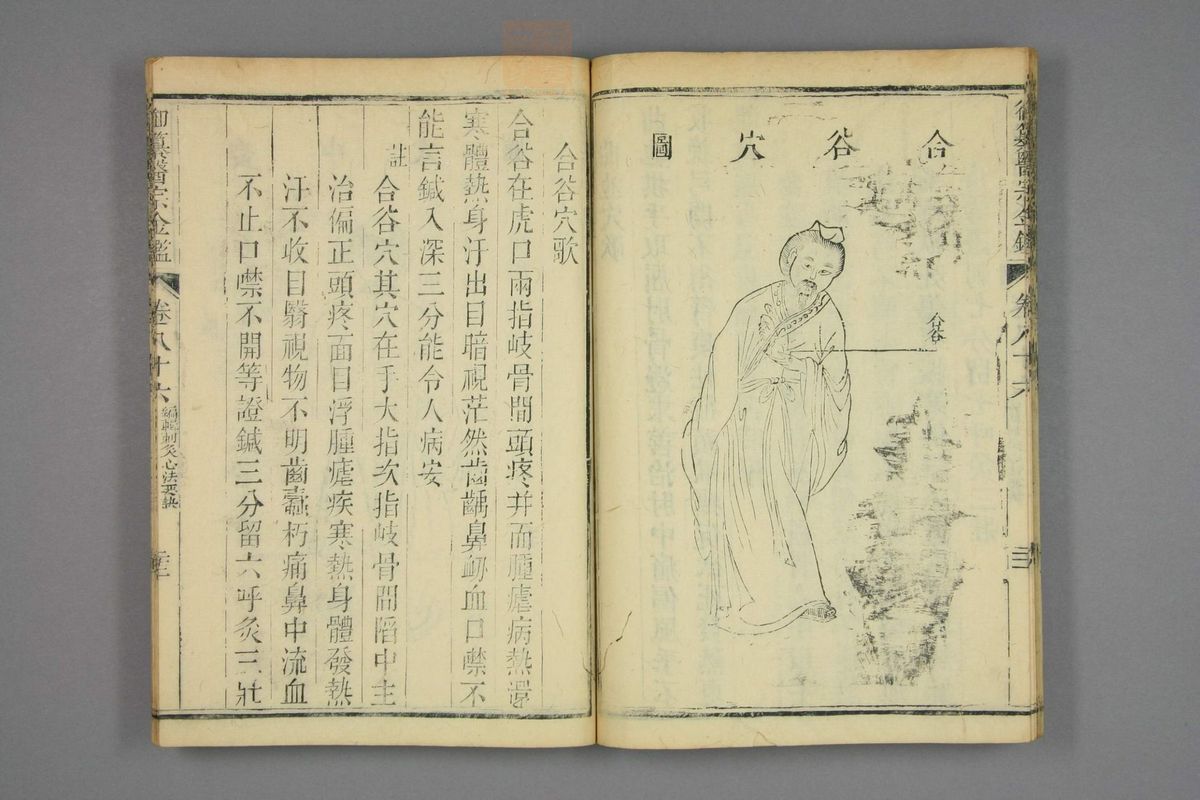 合谷穴圖
合谷
卷八十六
合谷穴歌
合谷在虎口兩指岐骨間頭疼并面腫瘧病熱還
寒體熱身汗出目暗視茫然齒齲鼻衂血口噤不
能言鍼入深三分能令人病安
註
合谷穴其穴在手大指次指岐骨間陷中主
治偏正頭疼面目浮腫瘧疾寒熱身體發熱
汗不收目翳視物不明齒蠹朽痛鼻中流血
不止口噤不開等證鍼三分留六呼灸三壯
御纂醫宗金鑑
卷八十六
編輯刺灸心法要訣